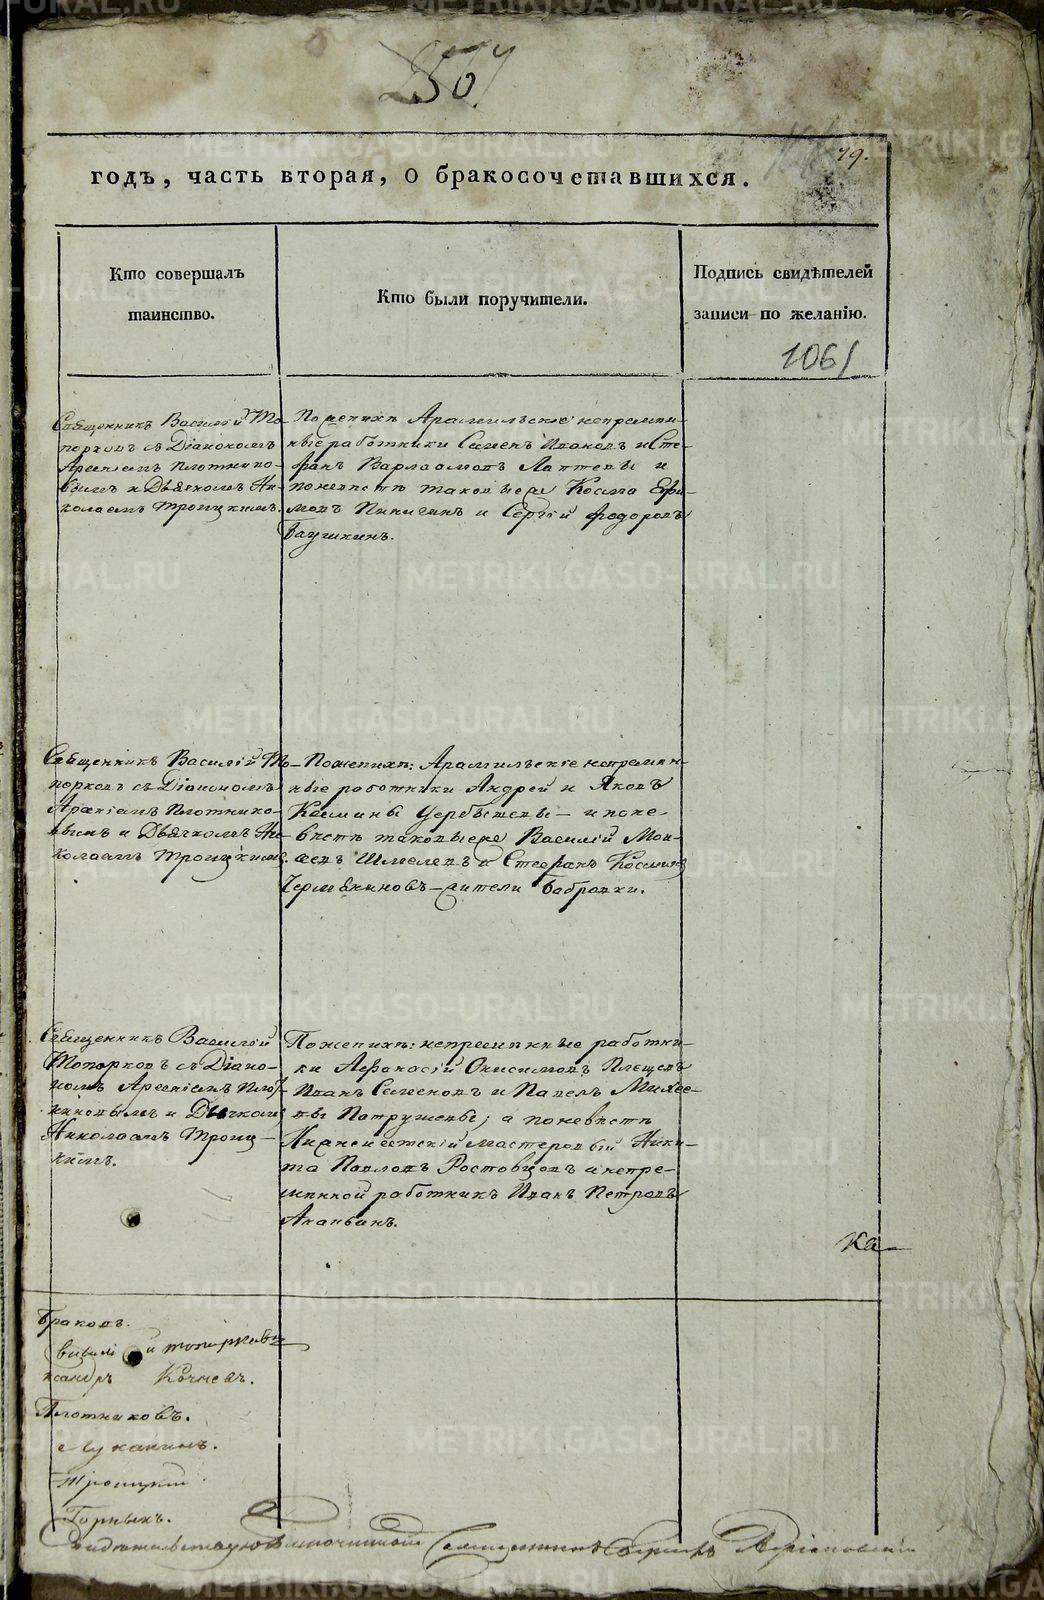 79.
годъ, часть вторая, о бракосочетавшихся.
Кто совершалъ
таинство.
Кто были поручители.
Подпись свидѣтелей
записи по желанію.
106
Священникъ Василій То-
порковъ съ Діакономъ
Арсеніемъ Плотнико-
вымъ и Дьячкомъ Ни-
колаемъ Троицкимъ.
По женихѣ Арамильскіе непремѣн-
ные работники Семенъ Ивановъ и Сте-
фанъ Варлаамовъ Лаптевы и
по невѣстѣ таковые же Косма Ефи-
мовъ и Сергій Федоровъ
Баушкинъ.
Священникъ Василій То-
порковъ съ Діакономъ
Арсеніемъ Плотнико-
вымъ и Дьячкомъ Ни-
колаемъ Троицкимъ.
По женихѣ: Арамильскіе непремѣн-
ные работники Андрей и Яковъ
Космины и по не-
вѣстѣ таковые же Василій Мои-
сеевъ Шмелевъ и Стефанъ Косминъ
жители Бобровки.
Священникъ Василій
Топорковъ съ Діако-
номъ Арсеніемъ Плот-
никовымъ и Дьячкомъ
Николаемъ Троиц-
кимъ.
По женихѣ: непремѣнные работни-
ки Афанасій Онисимовъ Плещевъ
Иванъ Семеновъ и Павелъ Михее-
вы Патрушевы; а по невѣстѣ
мастеровый Ники-
та Павловъ Ростовцовъ и непре-
мѣнной работникъ Иванъ Петровъ
Ка
Браковъ.
Топорковъ
Кочневъ.
Плотниковъ.
Луканинъ.
Троицкій
Горныхъ.
Благочинный Священникъ